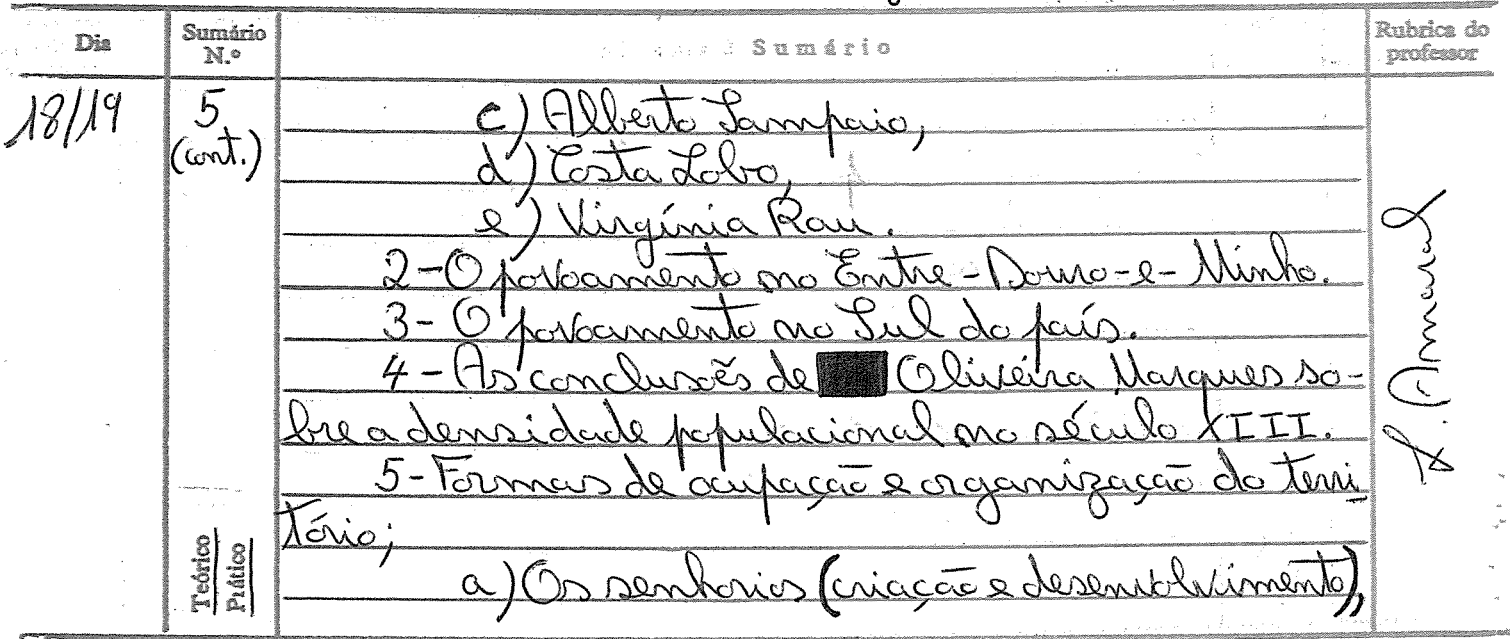 Dia Sumário N.º Sumário Rubrica do professor
18/19 5 (cont.)
c) Alberto Sampaio,
d) Costa Lobo,
e) Virgínia Rau.
2-O povoamento no Entre-Douro-e-Minho.
3- O povoamento no Sul do país.
4-As conclusões de Oliveira Marques so-
bre a densidade populacional no século XIII.
5-Formas de ocupação e organização do terri
tório;
a) Os senhorios (criação e desenvolvimento),
Teórico
Prático
L. Amaral